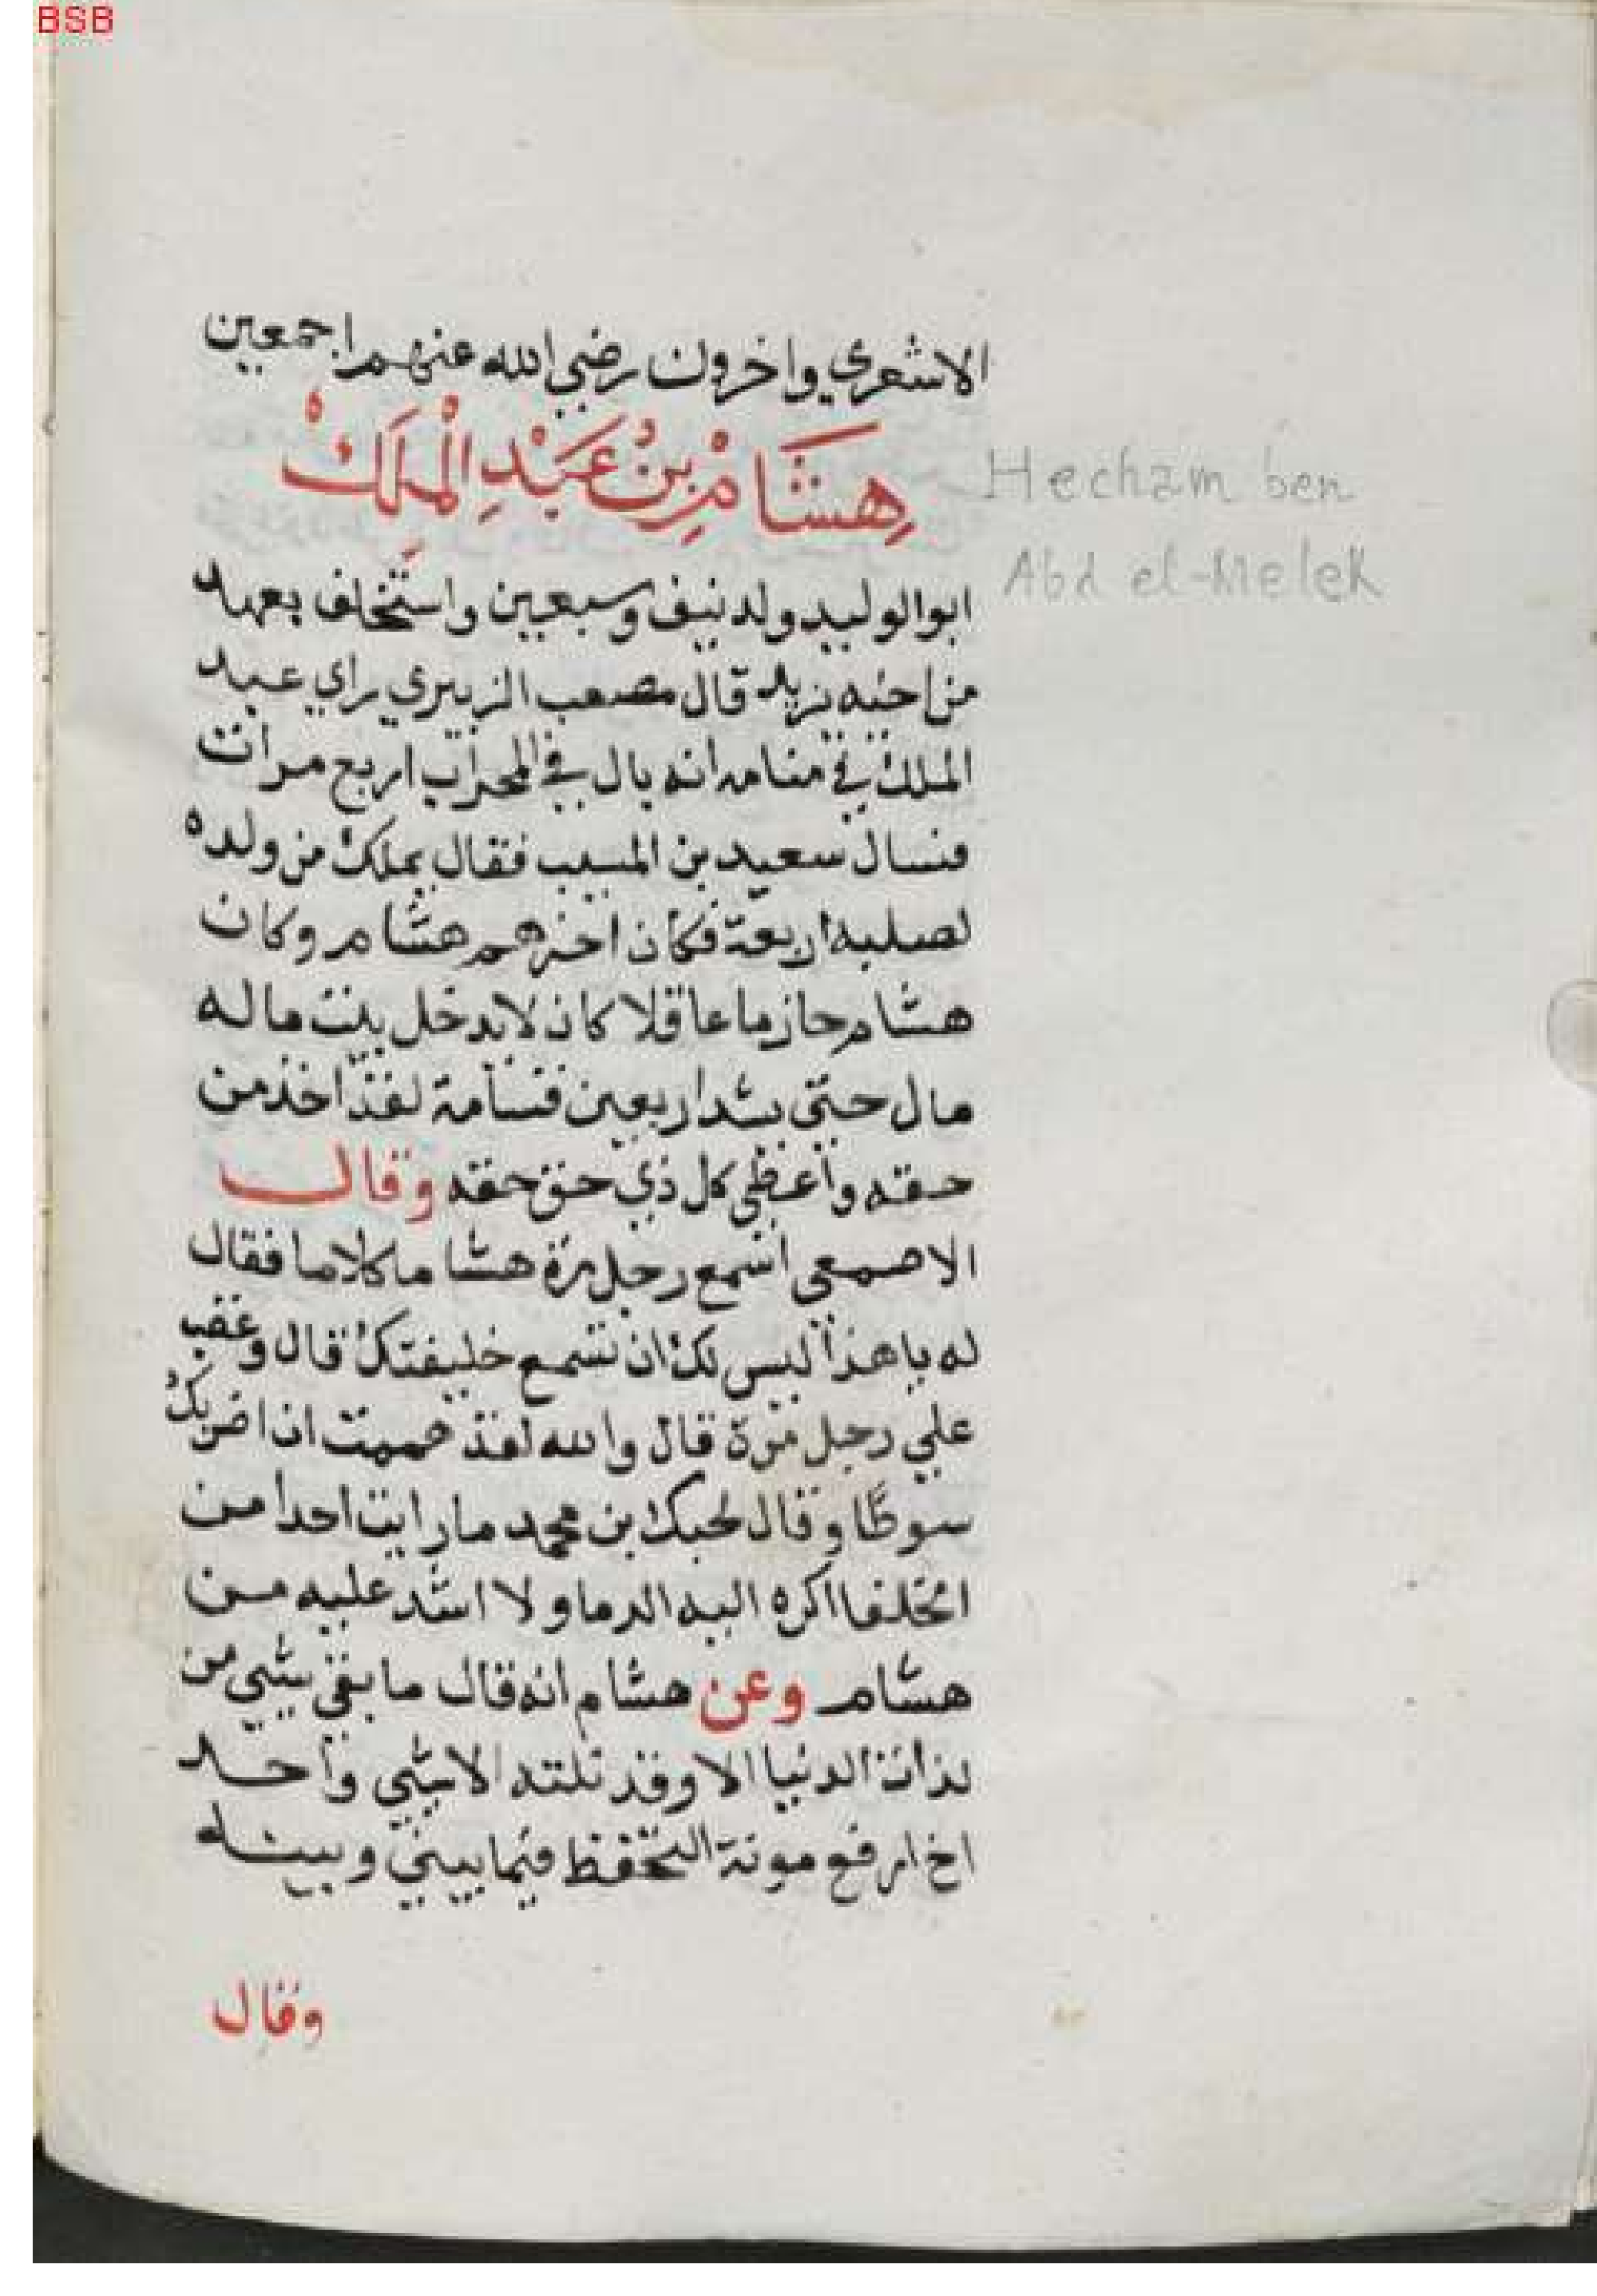 BSB
الاشعري واخرون رضي الله عنهم اجمعين
هِشَامْ بِنْ عَبْدِ الْمَلِكْ
Hecham ben
Abd el-Melek
ابو الوليد ولد نيف وسبعين واستخلف بعهد
من اخيه يزيد قال مصعب الزبيري راي عبد
الملك في منامه انه بال في المحراب اربع مرات
فسال سعيد بن المسيب فقال يملك من ولده
لصلبه اربعة فكان اخرهم هشام وكان
هشام حازما عاقلا كان لا يدخل بيت ماله
مال حتي يشد اربعين قسامة لقد اخذ من
حقه واعطي كل ذي حق حقه وقال
الاصمعي اسمع رجل مرة هشاما كلاما فقال
له يا هذا ليس لك ان تسمع خليفتك قال وغضب
علي رجل مرة قال والله لقد هممت ان اضربك
سوطا وقال لحبك بن محمد ما رايت احدا من
الخلفا اكره اليه الدما ولا اشد عليه من
هشام وعن هشام انه قال ما بقي شي من
لذات الدنيا الا وقد نلته الا شي واحد
اخ ارفع مونة التحفظ فيما بيني وبينه
وقال